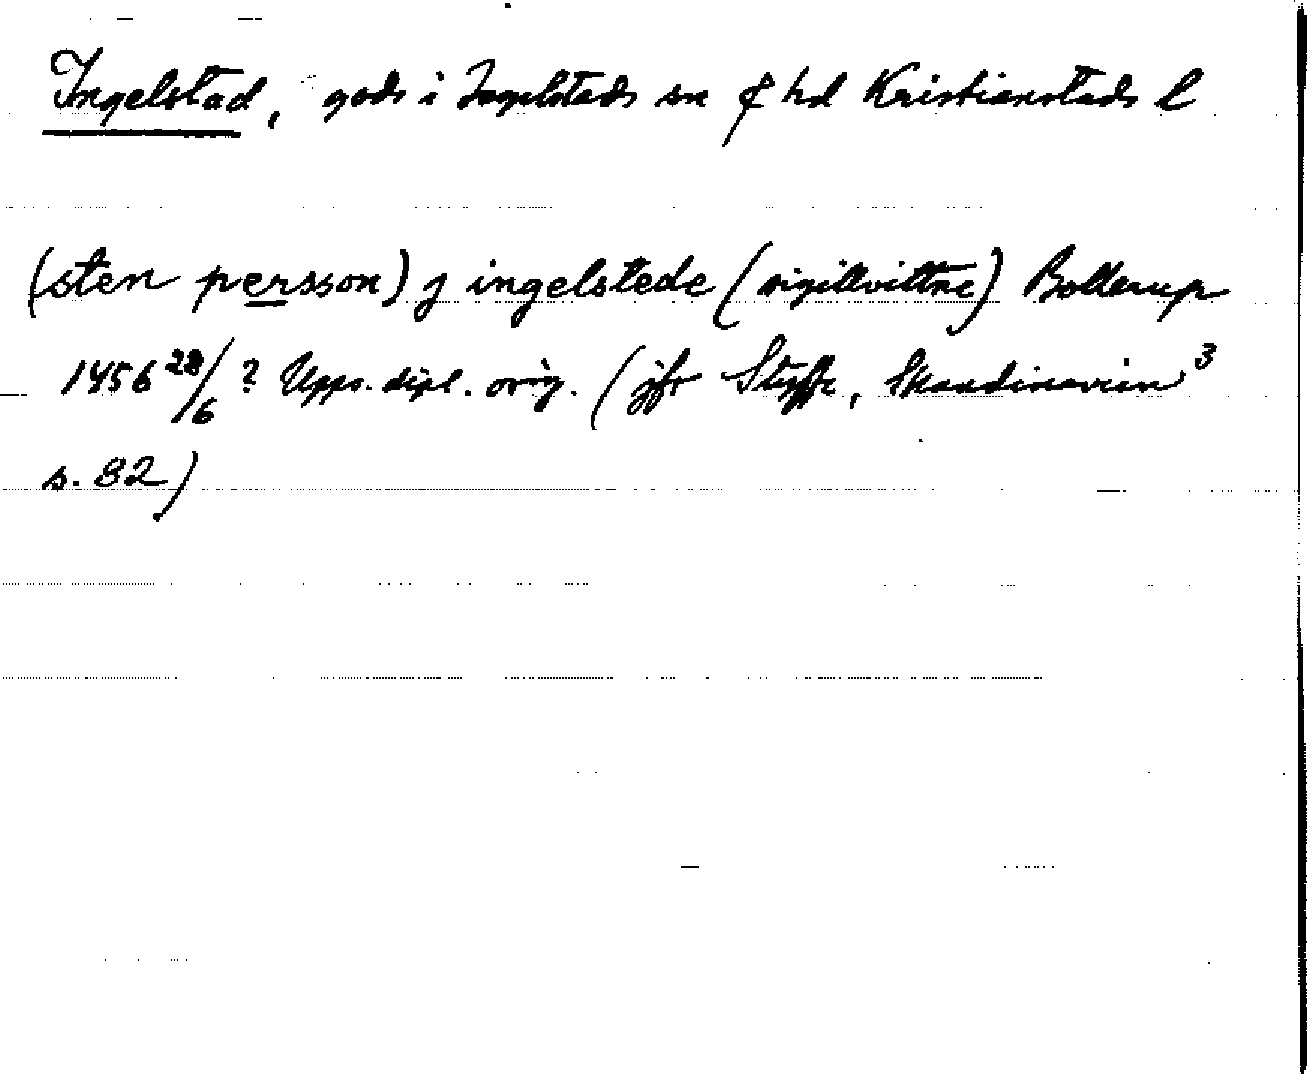 Ingelstad, gods i Ingelstads sn & hd Kristianstads l
(sten persson) j ingelstede (sigillvittne) Bollerup
1456 28/6 ? Upps. dipl. orig. (jfr Styffe, Skandinavien³
s. 82)